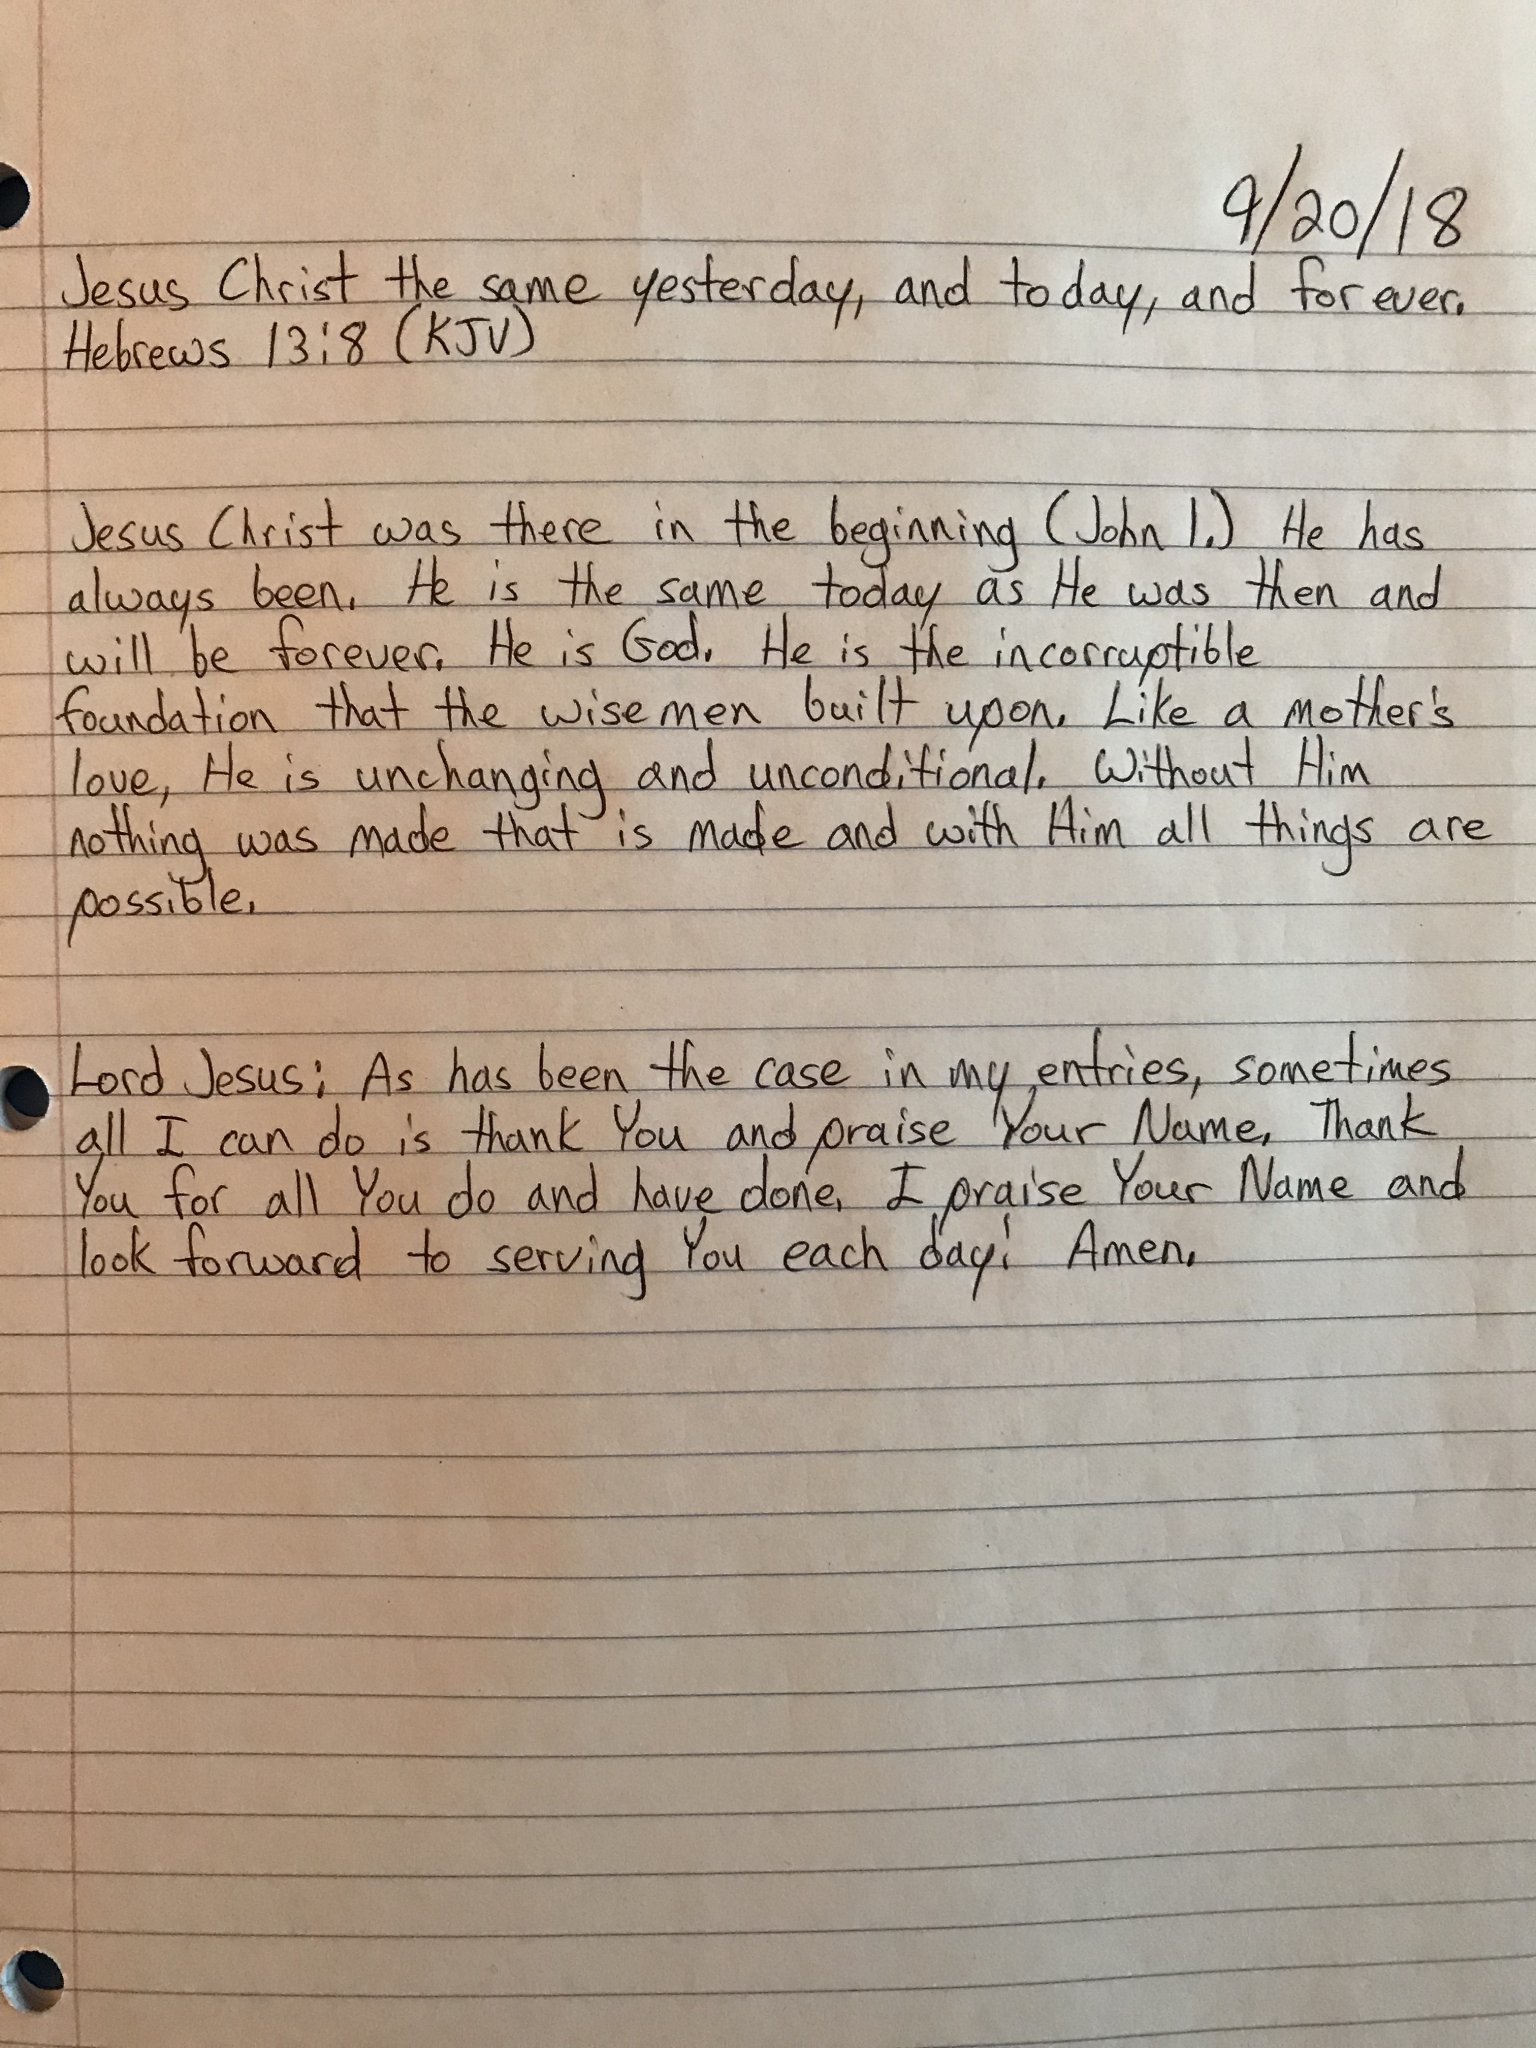 9/20/18
Jesus Christ the same yesterday, and today, and for ever.
Hebrews 13:8 (KJV)
Jesus Christ was there in the beginning (John 1.) He has
always been. He is the same today as He was then and
will be forever. He is God. He is the incorruptible
foundation that the wise men built upon. Like a mother's
love, He is unchanging and unconditional. Without Him
nothing was made that is made and with Him all things are
possible.
Lord Jesus: As has been the case in my entries, sometimes
all I can do is thank You and praise Your Name. Thank
You for all You do and have done. I praise Your Name and
look forward to serving You each day! Amen.